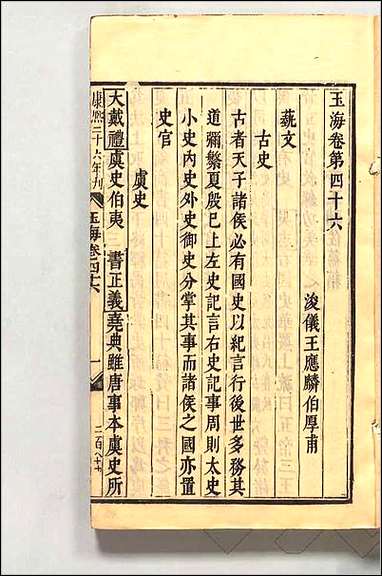 玉海卷第四十六
浚儀王應麟伯厚甫
藝文
古史
古者天子諸侯必有國史以紀言行後世多務其
道彌繁夏殷已上左史記言右史記事周則太史
小史内史外史御史分掌其事而諸侯之國亦置
史官
虞史
大戴禮虞史伯夷 書正義堯典雖唐事本虞史所
康熙二十六年刊 玉海卷四十六 一